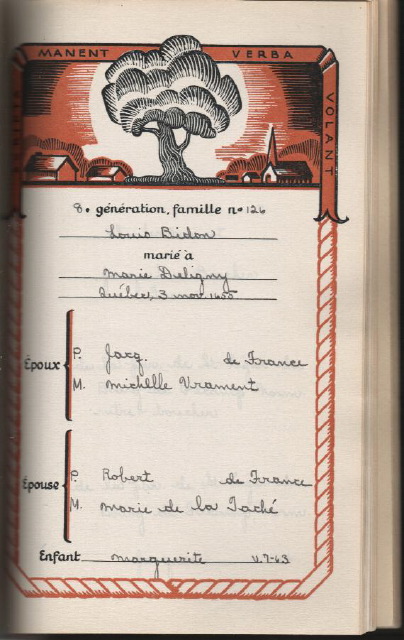 MANENT VERBA VOLANT
8e génération, famille nº 126
Louis Bidon
marié à
Marie Deligny
Québec, 3 nov. 1655
Époux
P. Jacq. de France
M. Michelle Vrament
Épouse
P. Robert de France
M. Marie de la Taché
Enfant Marguerite V. 7-63